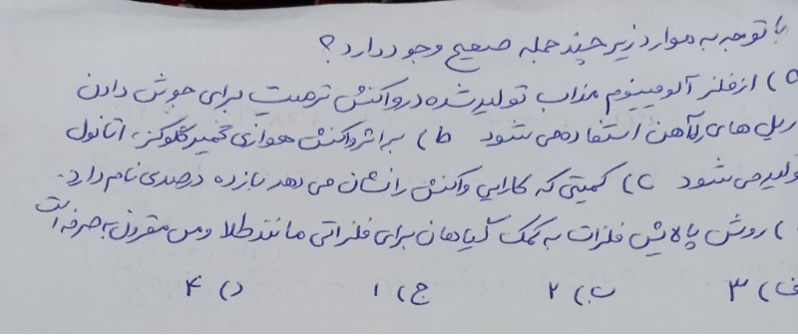 با توجه به موارد زیر چند جمله صحیح وجود دارد؟
a) از فلز آلومینیوم مذاب تولید شده در واکنش ترمیت برای جوش دادن
ریل های راه آهن استفاده می شود b) بر اثر واکنش هوازی تخمیر گلوکز، اتانول
تولید می شود c) کمیتی که کارایی واکنش را نشان می دهد بازده درصدی نام دارد.
) روش پالایش فلزات به کمک گیاهان برای فلزاتی مانند طلا و مس مقرون به صرفه است
الف) ۳ ب) ۲ ج) ۱ د) ۴